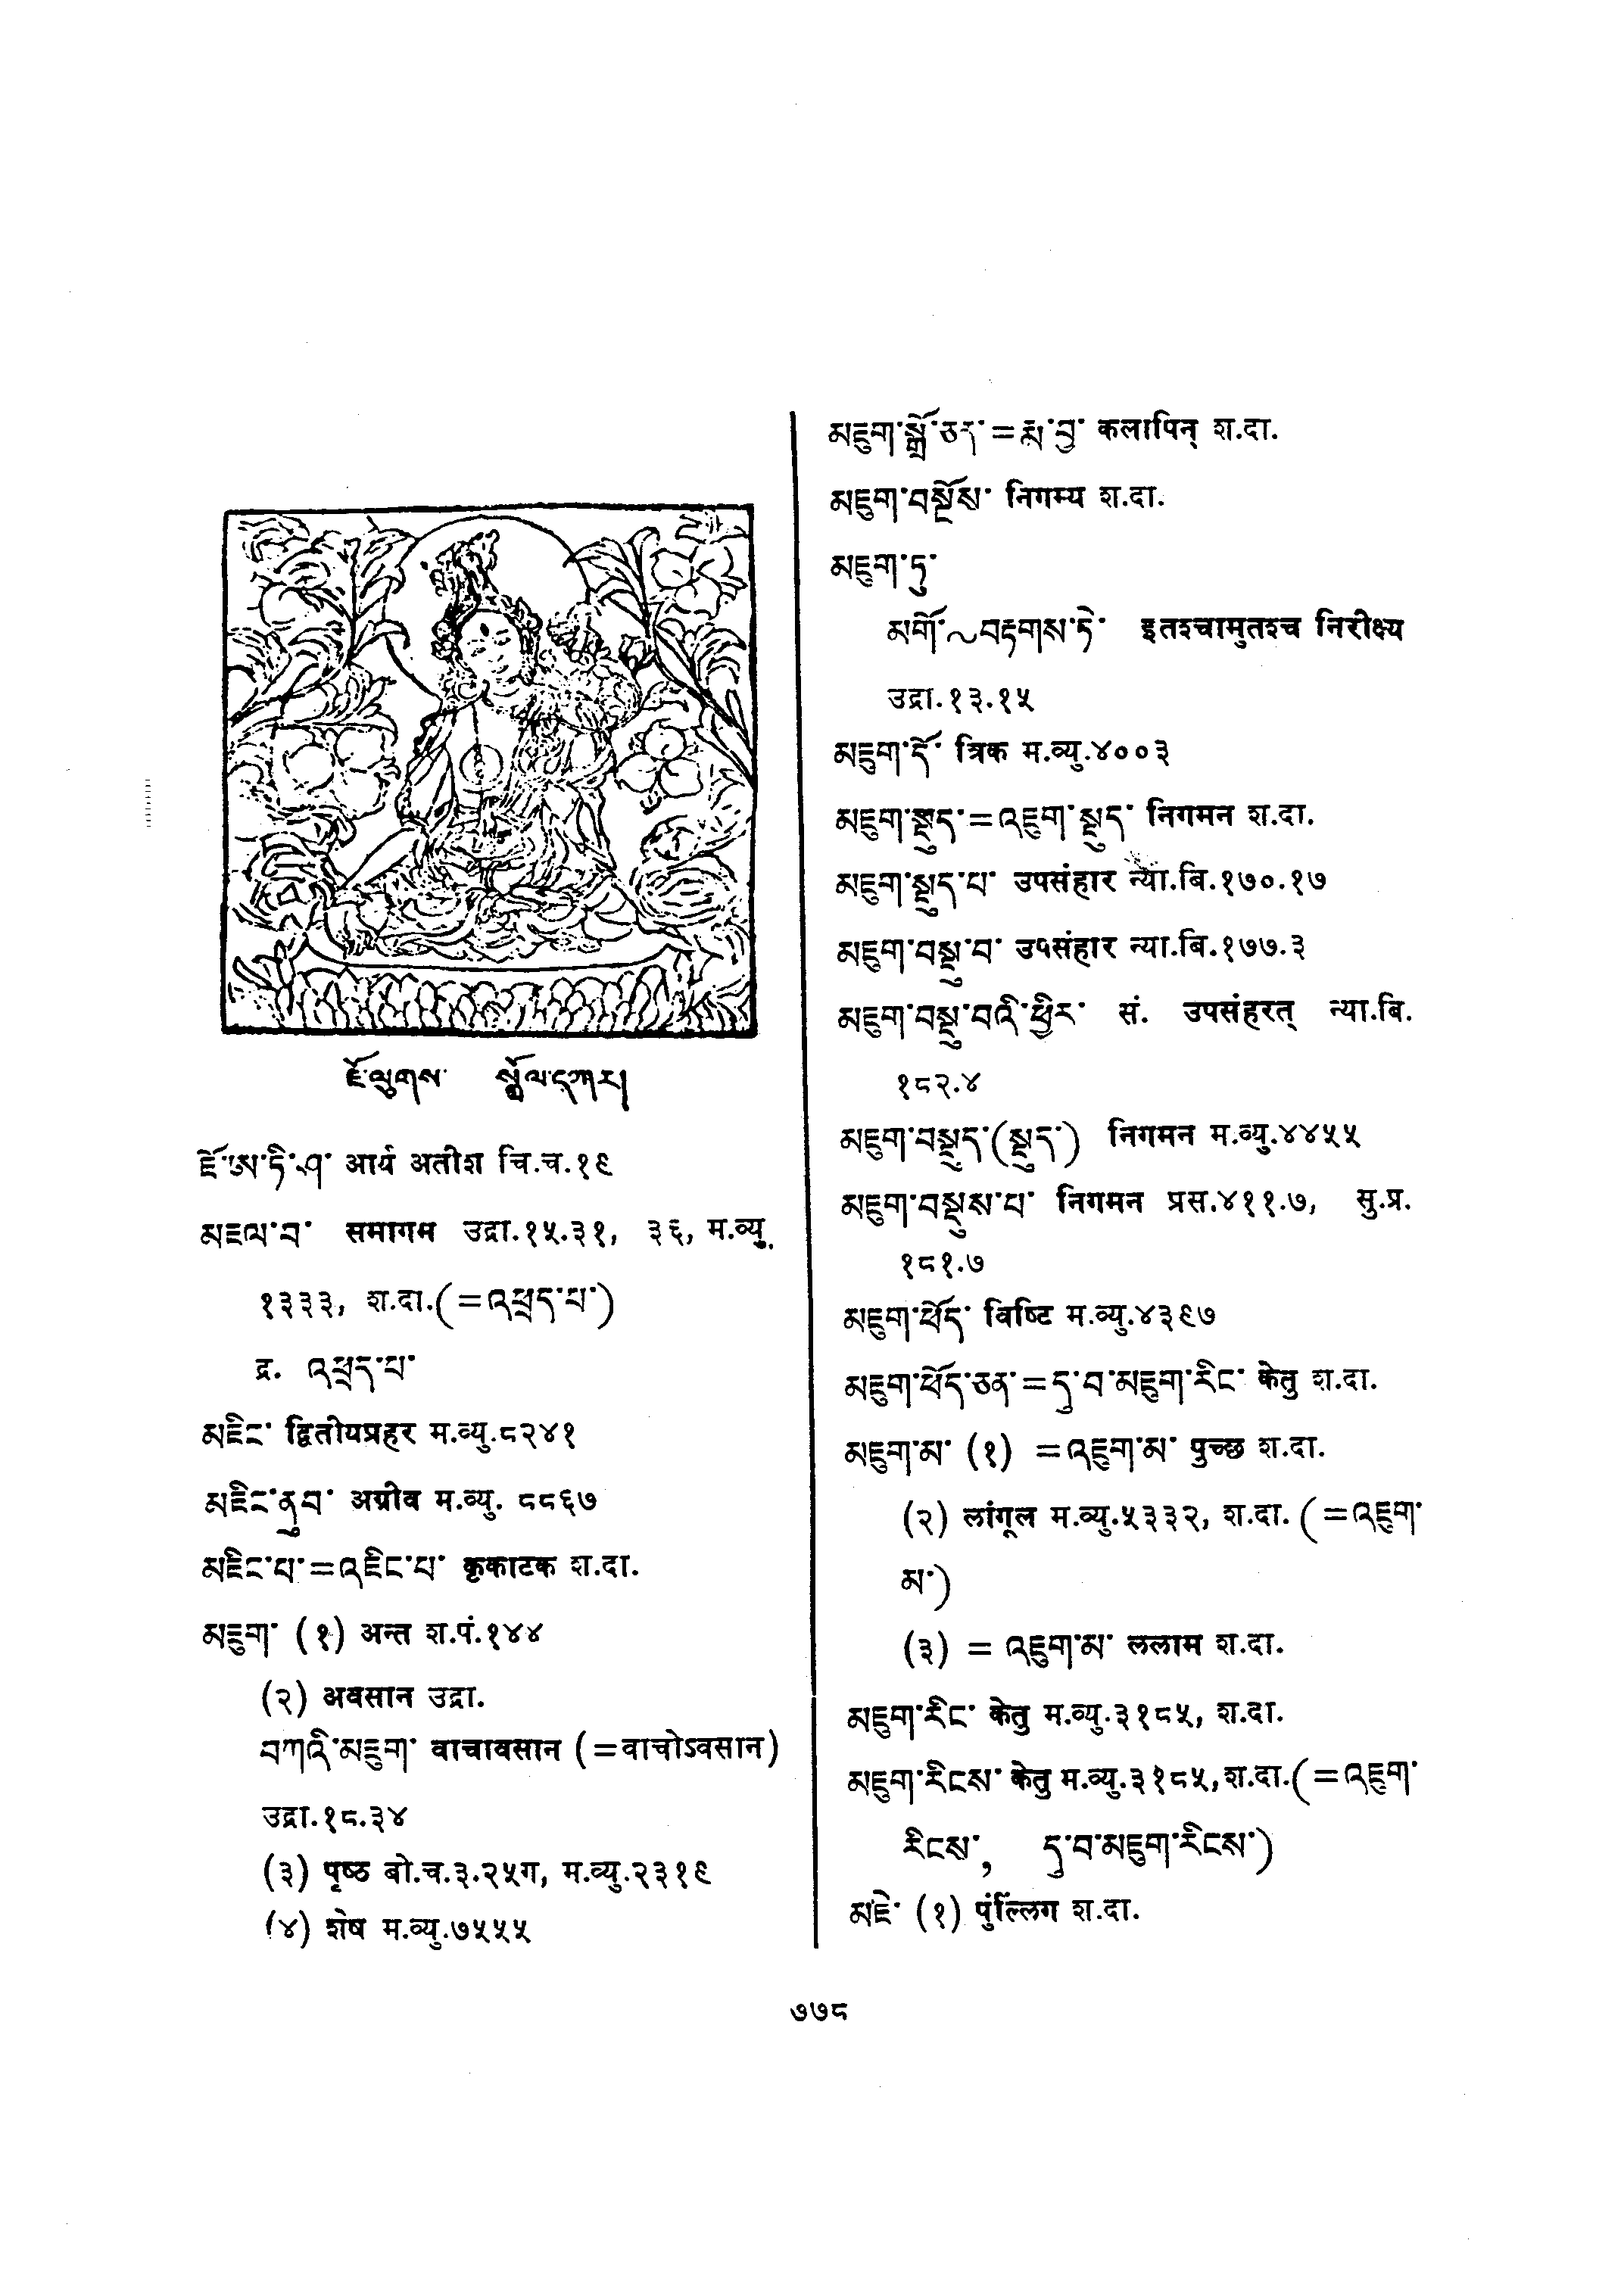 ཇོ་ལུགས་ སྒྲོལ་དཀར།
ཇོ་ཨ་ཏི་ཤ་ आर्य अतीश चि.च.१९
མཇལ་བ་ समागम उद्रा.१५.३१, ३६, म.व्यु.
१३३३, श.दा.(=འཕྲད་པ་)
द्र. འཕྲད་པ་
མཇིང་ द्वितीयप्रहर म.व्यु.८२४१
མཇིང་ནུབ་ अग्रीव म.व्यु. ८८६७
མཇིང་པ་=འཇིང་པ་ कृकाटक श.दा.
མཇུག་ (१) अन्त श.पं.१४४
(२) अवसान उद्रा.
བཀའི་མཇུག་ वाचावसान (=वाचोऽवसान)
उद्रा.१८.३४
(३) पृष्ठ बो.च.३.२५ग, म.व्यु.२३१९
(४) शेष म.व्यु.७५५५
མཇུག་སྒྲོ་ཅན་=རྨ་བྱ་ कलापिन् श.दा.
མཇུག་བསྔོས་ निगम्य श.दा.
མཇུག་ཏུ་
མགོ་~བརྟགས་ཏེ་ इतश्चामुतश्च निरीक्ष्य
उद्रा.१३.१५
མཇུག་དོ་ त्रिक म.व्यु.४००३
མཇུག་སྡུད་=འཇུག་སྡུད་ निगमन श.दा.
མཇུག་སྡུད་པ་ उपसंहार न्या.बि.१७०.१७
མཇུག་བསྡུ་བ་ उपसंहार न्या.बि.१७७.३
མཇུག་བསྡུ་བའི་ཕྱིར་ सं. उपसंहरत् न्या.बि.
१८२.४
མཇུག་བསྡུད་(སྡུད་) निगमन म.व्यु.४४५५
མཇུག་བསྡུས་པ་ निगमन प्रस.४११.७, सु.प्र.
१८१.७
མཇུག་ཕོད་ विष्टि म.व्यु.४३९७
མཇུག་ཕོད་ཅན་=དུ་བ་མཇུག་རིང་ केतु श.दा.
མཇུག་མ་ (१) =འཇུག་མ་ पुच्छ श.दा.
(२) लांगूल म.व्यु.५३३२, श.दा. (=འཇུག་
མ་)
(३) = འཇུག་མ་ ललाम श.दा.
མཇུག་རིང་ केतु म.व्यु.३१८५, श.दा.
མཇུག་རིངས་ केतु म.व्यु.३१८५,श.दा.(=འཇུག་
རིངས་, དུ་བ་མཇུག་རིངས་)
མཇེ་ (१) पुंल्लिंग श.दा.
७७८